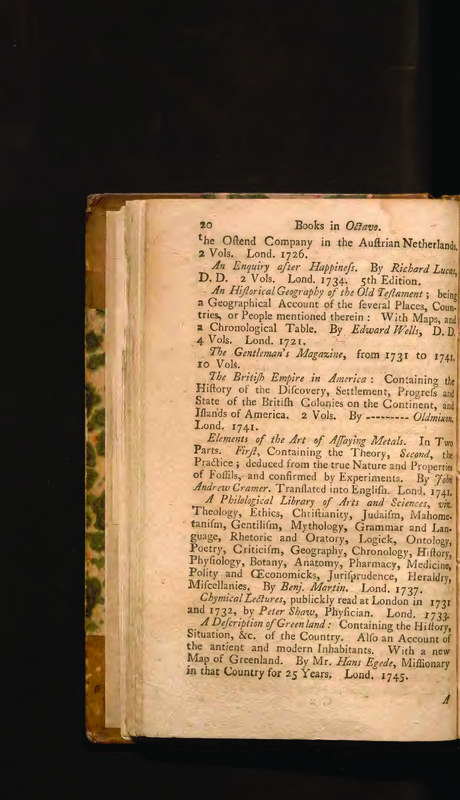 20 Books in Octavo.
the Ostend Company in the Austrian Netherlands,
2 Vols. Lond. 1726.
An Enquiry after Happiness. By Richard Lucas,
D. D. 2 Vols. Lond. 1734. 5th Edition.
An Historical Geography of the Old Testament; being
a Geographical Account of the several Places, Coun-
tries, or People mentioned therein: With Maps, and
a Chronological Table. By Edward Wells, D. D.
4 Vols. Lond. 1721.
The Gentleman's Magazine, from 1731 to 1741.
10 Vols.
The British Empire in America: Containing the
History of the Discovery, Settlement, Progress and
State of the British Colonies on the Continent, and
Islands of America. 2 Vols. By --------- Oldmixon.
Lond. 1741.
Elements of the Art of Assaying Metals. In Two
Parts. First, Containing the Theory, Second, the
Practice; deduced from the true Nature and Properties
of Fossils, and confirmed by Experiments. By John
Andrew Cramer. Translated into English. Lond. 1741.
A Philological Library of Arts and Sciences, viz.
Theology, Ethics, Christianity, Judaism, Mahome-
tanism, Gentilism, Mythology, Grammar and Lan-
guage, Rhetoric and Oratory, Logick, Ontology,
Poetry, Criticism, Geography, Chronology, History,
Physiology, Botany, Anatomy, Pharmacy, Medicine,
Polity and Œconomicks, Jurisprudence, Heraldry,
Miscellanies. By Benj. Martin. Lond. 1737.
Chymical Lectures, publickly read at London in 1731
and 1732, by Peter Shaw, Physician. Lond. 1733.
A Description of Greenland: Containing the History,
Situation, &c. of the Country. Also an Account of
the antient and modern Inhabitants. With a new
Map of Greenland. By Mr. Hans Egede, Missionary
in that Country for 25 Years. Lond. 1745.
A